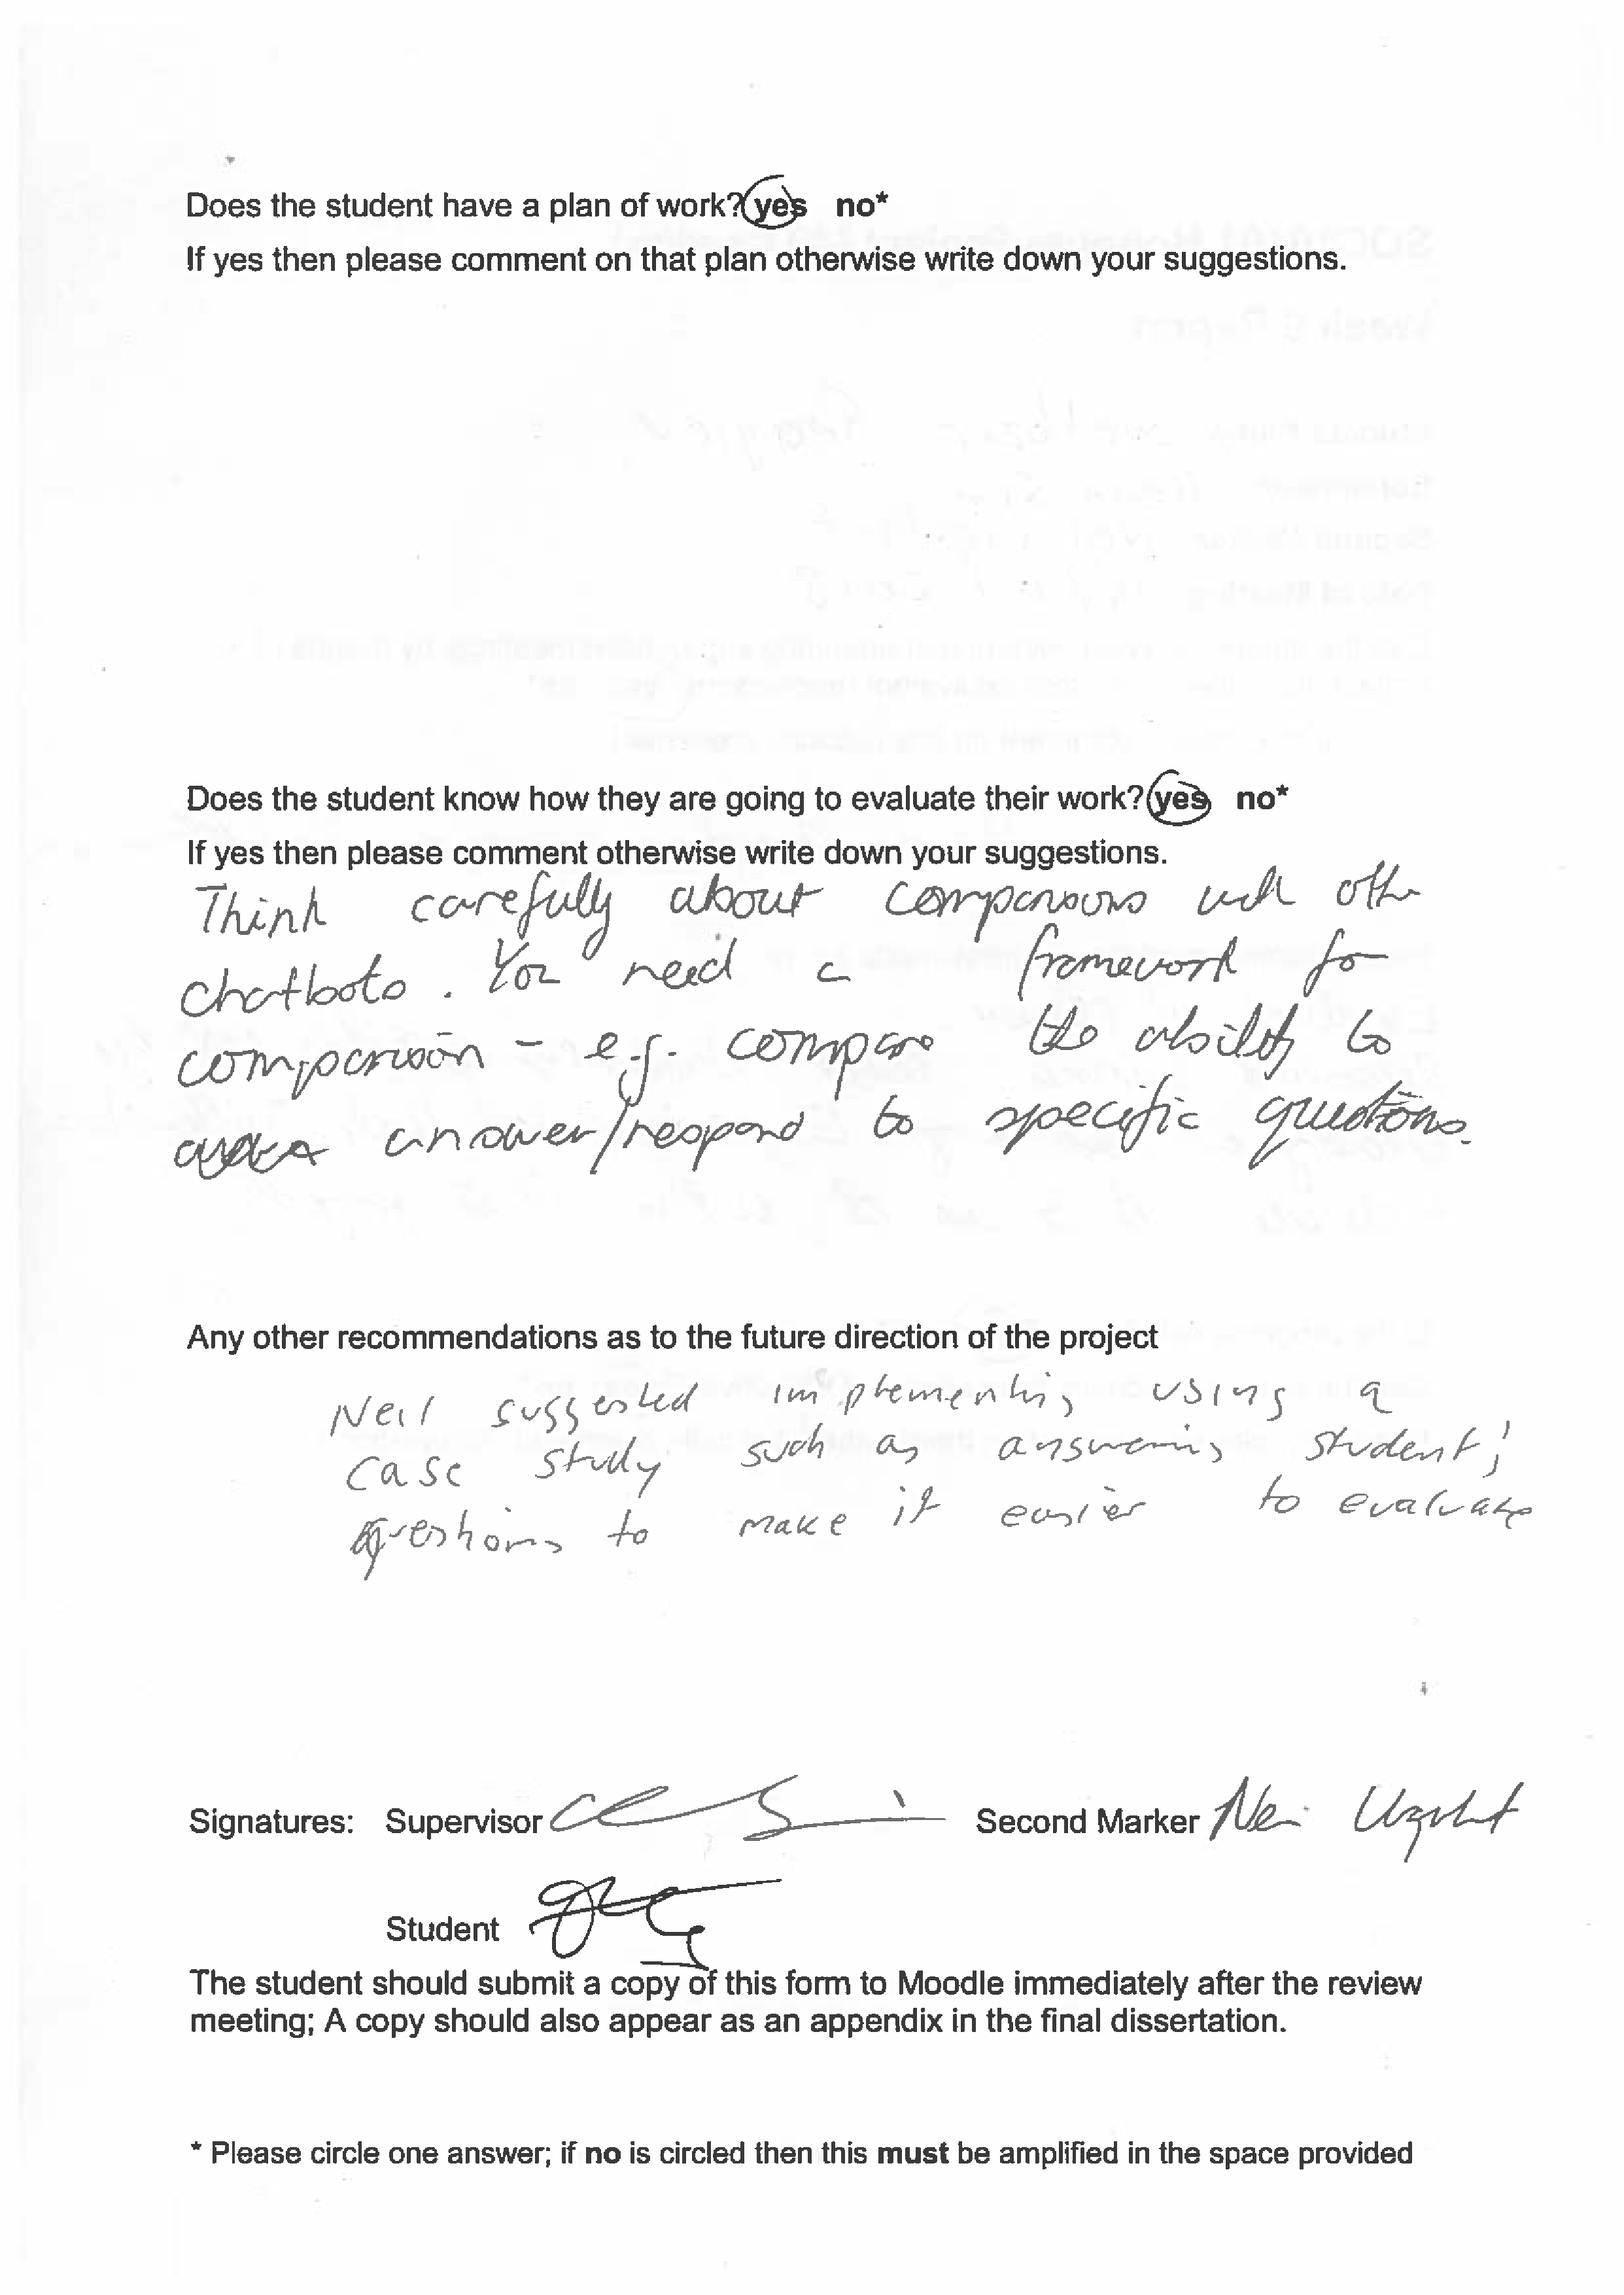 Does the student have a plan of work? yes no*
If yes then please comment on that plan otherwise write down your suggestions.
Does the student know how they are going to evaluate their work? yes no*
If yes then please comment otherwise write down your suggestions.
Think carefully about comparisons with other
chatbots. You need a framework for
comparison - e.g. compare the ability to
answer/respond to specific questions.
Any other recommendations as to the future direction of the project
Neil suggested implementing using a
case study such as answering student's
questions to make it easier to evaluate
Signatures: Supervisor Second Marker
Student
The student should submit a copy of this form to Moodle immediately after the review
meeting; A copy should also appear as an appendix in the final dissertation.
* Please circle one answer; if no is circled then this must be amplified in the space provided